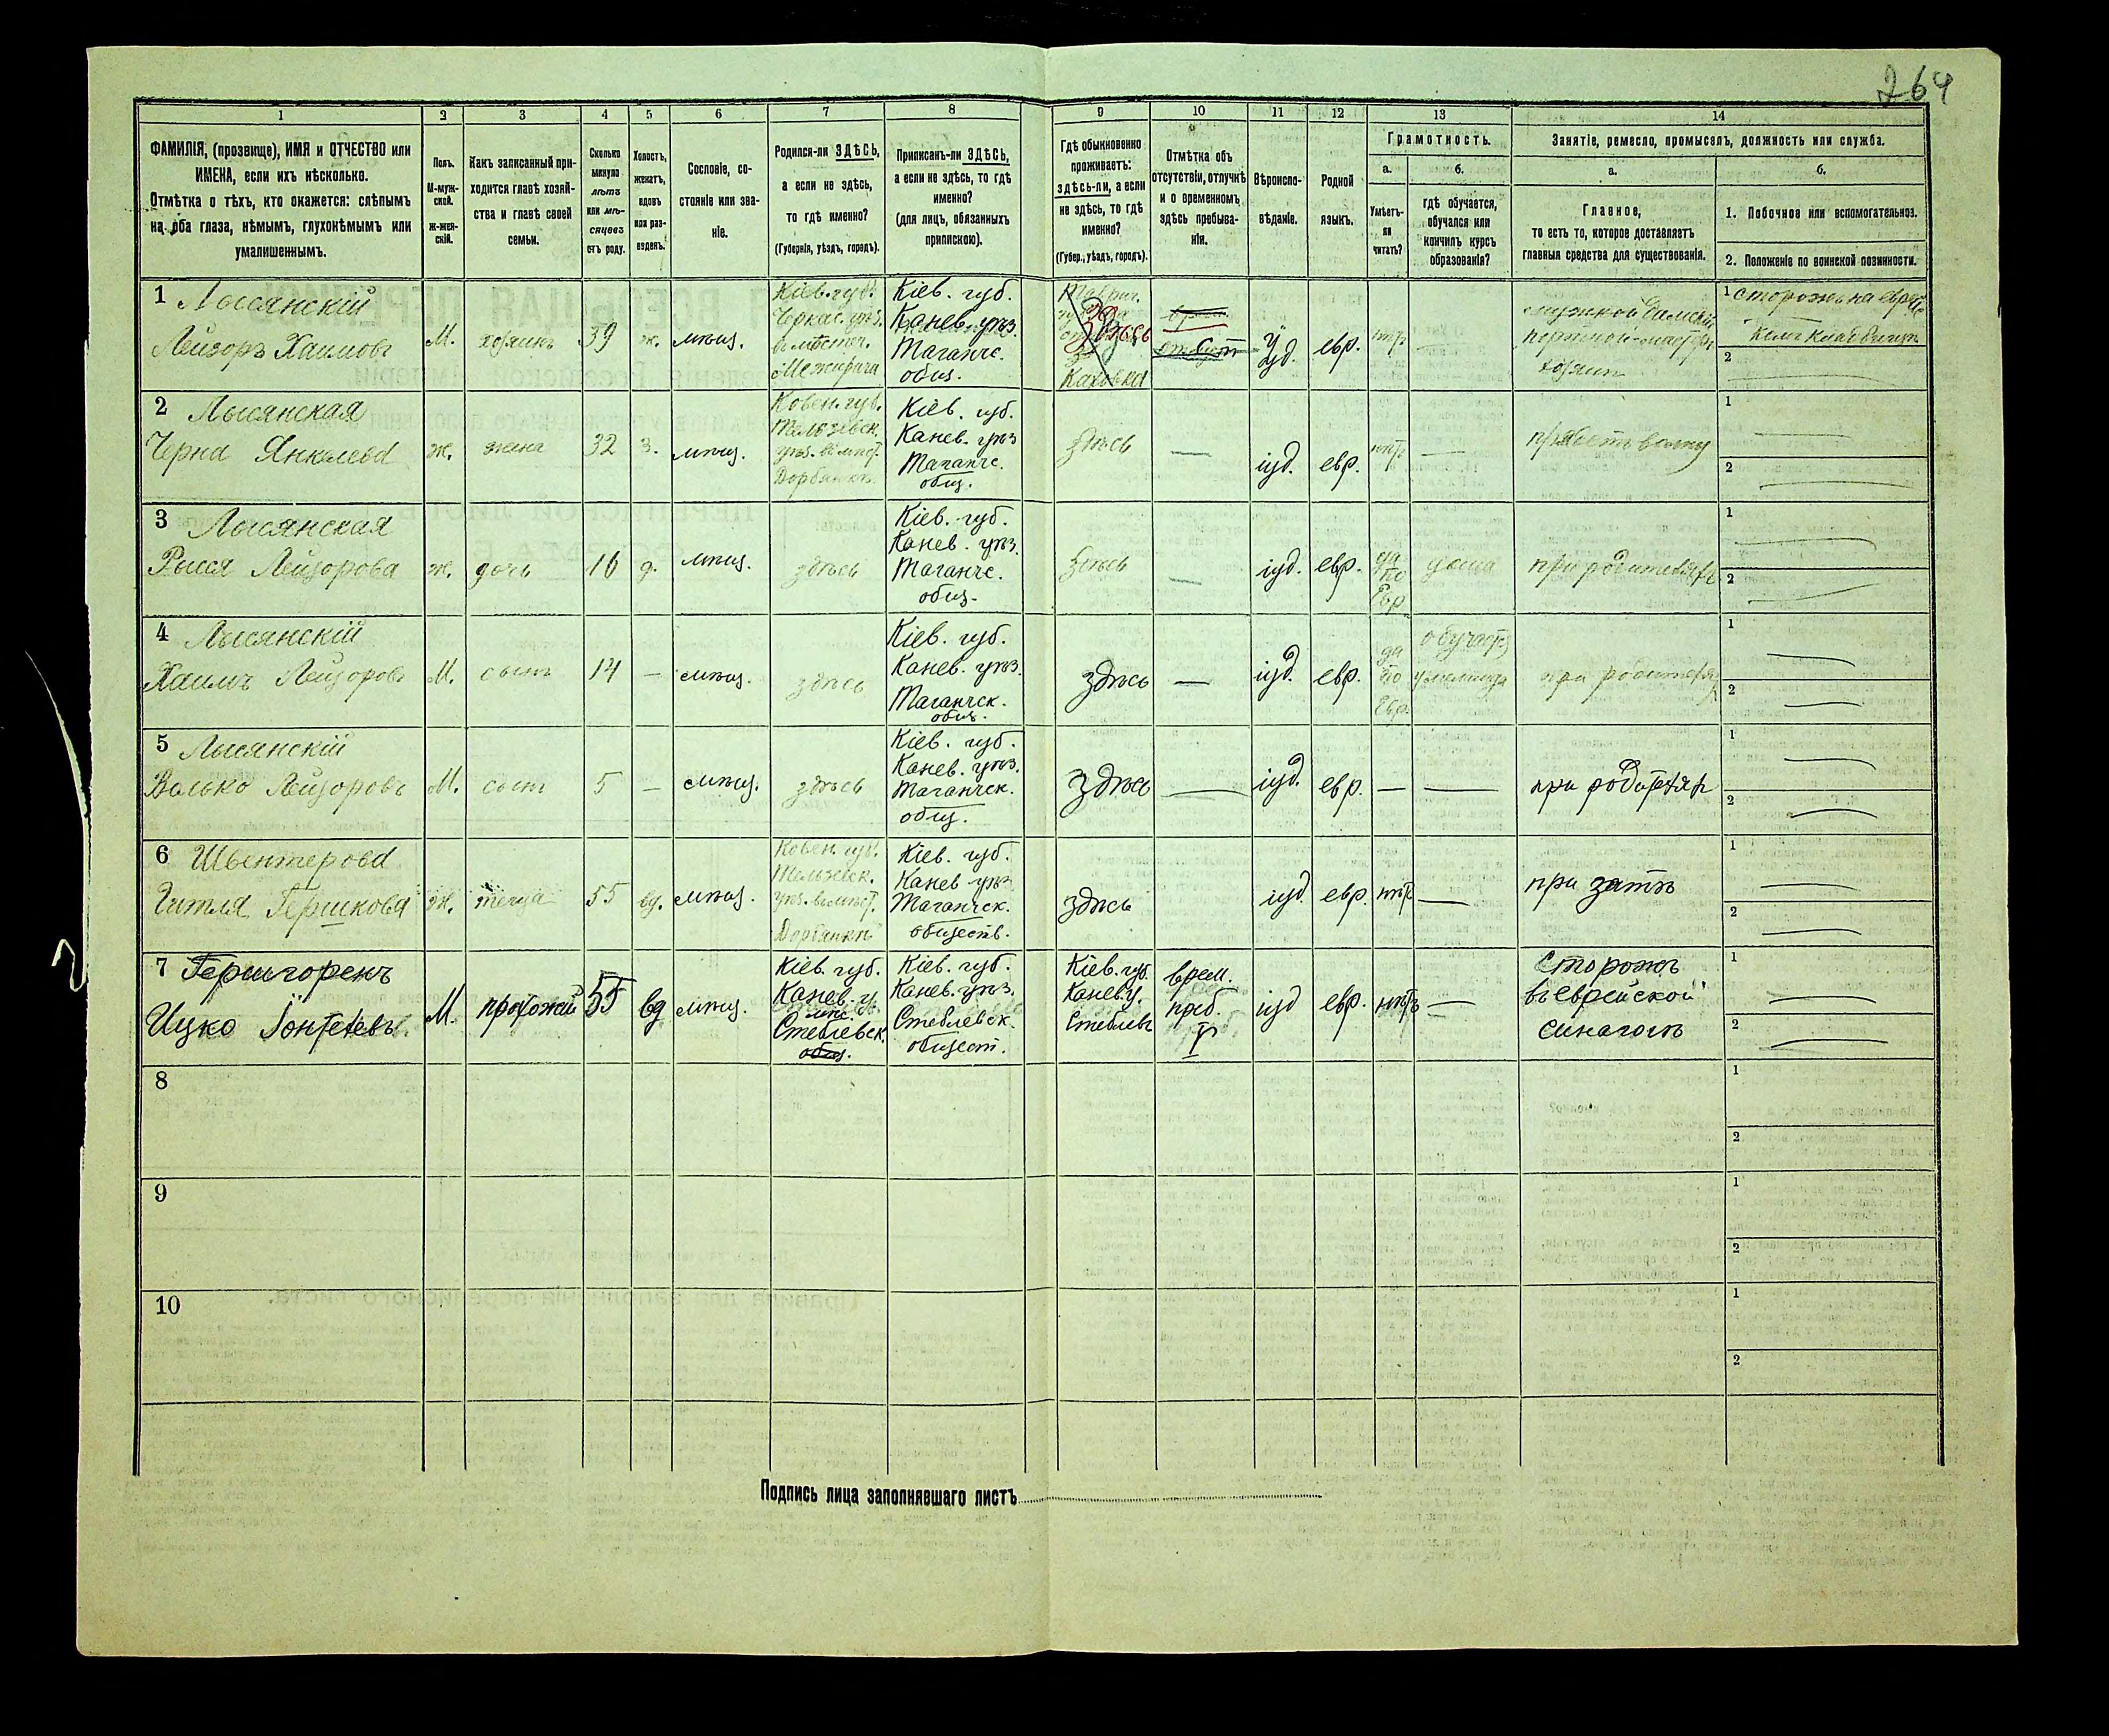 264
1 2 3 4 5 6 7 8 9 10 11 12 13 14
ФАМИЛІЯ, (прозвище), ИМЯ и ОТЧЕСТВО или
ИМЕНА, если ихъ нѣсколько.
Отмѣтка о тѣхъ, кто окажется: слѣпымъ
на оба глаза, нѣмымъ, глухонѣмымъ или
умалишеннымъ.
Полъ.
М-муж-
ской.
Ж-жен-
скій.
Какъ записанный при-
ходится главѣ хозяй-
ства и главѣ своей
семьи.
Сколько
минуло
лѣтъ
или мѣ-
сяцевъ
отъ роду.
Холостъ,
женатъ,
вдовъ
или раз-
веденъ.
Сословіе, со-
стояніе или зва-
ніе.
Родился-ли ЗДѢСЬ,
а если не здѣсь,
то гдѣ именно?
(Губернія, уѣздъ, городъ).
Приписанъ-ли ЗДѢСЬ,
а если не здѣсь, то гдѣ
именно?
(для лицъ, обязанныхъ
припискою).
Гдѣ обыкновенно
проживаетъ:
здѣсь-ли, а если
не здѣсь, то гдѣ
именно?
(Губер., уѣздъ, городъ).
Отмѣтка объ
отсутствіи, отлучкѣ
и о временномъ
здѣсь пребыва-
ніи.
Вѣроиспо-
вѣданіе.
Родной
языкъ.
Грамотность.
а.
Умѣетъ-
ли
читать?
б.
гдѣ обучается,
обучался или
кончилъ курсъ
образованія?
Занятіе, ремесло, промыселъ, должность или служба.
а.
Главное,
то есть то, которое доставляетъ
главныя средства для существованія.
б.
1. Побочное или вспомогательное.
2. Положеніе по воинской повинности.
1 Лысянскій
Лейзоръ Хаимовъ
М.
хозяинъ
39
ж.
мѣщ.
Кіев. губ.
Черкас. уѣз.
въ мѣстеч.
Межирича
Кіев. губ.
Канев. уѣз.
Таганче.
общ.
здѣсь
Каховка
іуд.
евр.
нѣтъ
—
хозяинъ
1 сторожъ на евре
2
2 Лысянская
Черна Янкелева
ж.
жена
32
з.
мѣщ.
Ковен. губ.
Тельшевск.
уѣз. въ мѣст.
Дорбянки
Кіев. губ.
Канев. уѣз
Таганче.
общ.
здѣсь
—
іуд.
евр.
нѣтъ
—
1
2
3 Лысянская
Рыся Лейзорова
ж.
дочь
16
д.
мѣщ.
здѣсь
Кіев. губ.
Канев. уѣз.
Таганче.
общ.
здѣсь
—
іуд.
евр.
да
по
Евр.
дома
при родителяхъ
1
2
4 Лысянскій
Хаимъ Лейзоровъ
М.
сынъ
14
—
мѣщ.
здѣсь
Кіев. губ.
Канев. уѣз.
Таганчск.
общ.
здѣсь
—
іуд.
евр.
да
по
Евр.
при родителях
1
2
5 Лысянскій
Волько Лейзоровъ
М.
сынъ
5
—
мѣщ.
здѣсь
Кіев. губ.
Канев. уѣз.
Таганчск.
общ.
здѣсь
—
іуд.
евр.
—
—
при родителях
1
2
6 Швентерова
Гитля Гершкова
ж.
теща
55
вд.
мѣщ.
Ковен. губ.
Тельшевск.
уѣз. въ мѣст.
Дорбянки
Кіев. губ.
Канев уѣз
Таганчск.
обществ.
здѣсь
іуд.
евр.
нѣтъ
—
при зятѣ
1
2
7 Гершгоренъ
Ицко
М.
прохожій
55
вд
мѣщ.
Кіев. губ.
Канев. у.
мѣс.
Стеблевск.
общ.
Кіев. губ.
Канев. уѣз.
Стеблевск.
общест.
Кіев. губ.
Канев. у.
Стеблевъ
врем.
преб.
іуд
евр.
нѣтъ
—
Сторожъ
въ еврейской
синагогѣ
1
2
8
1
2
9
1
2
10
1
2
Подпись лица заполнявшаго листъ